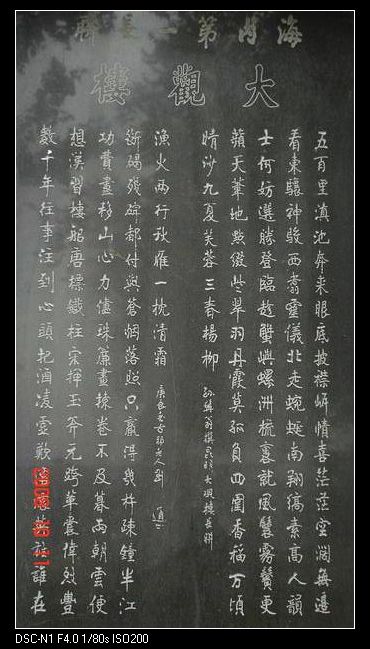 海內第一長聯
大觀樓
五百里滇池奔來眼底披襟岸幘喜茫茫空闊無邊
看東驤神駿西翥靈儀北走蜿蜒南翔縞素高人韻
士何妨選勝登臨趁蟹嶼螺洲梳裹就風鬟霧鬢更
蘋天葦地點綴些翠羽丹霞莫孤負四圍香稻萬頃
晴沙九夏芙蓉三春楊柳 孫髯翁撰昆明大觀樓長聯
數千年往事注到心頭把酒凌虛歎滾滾英雄誰在
想漢習樓船唐標鐵柱宋揮玉斧元跨革囊偉烈豐
功費盡移山心力儘珠簾畫棟卷不及暮雨朝雲便
斷碣殘碑都付與蒼烟落照只贏得幾杵疎鐘半江
漁火兩行秋雁一枕清霜
DSC-N1 F4.0 1/80s ISO200